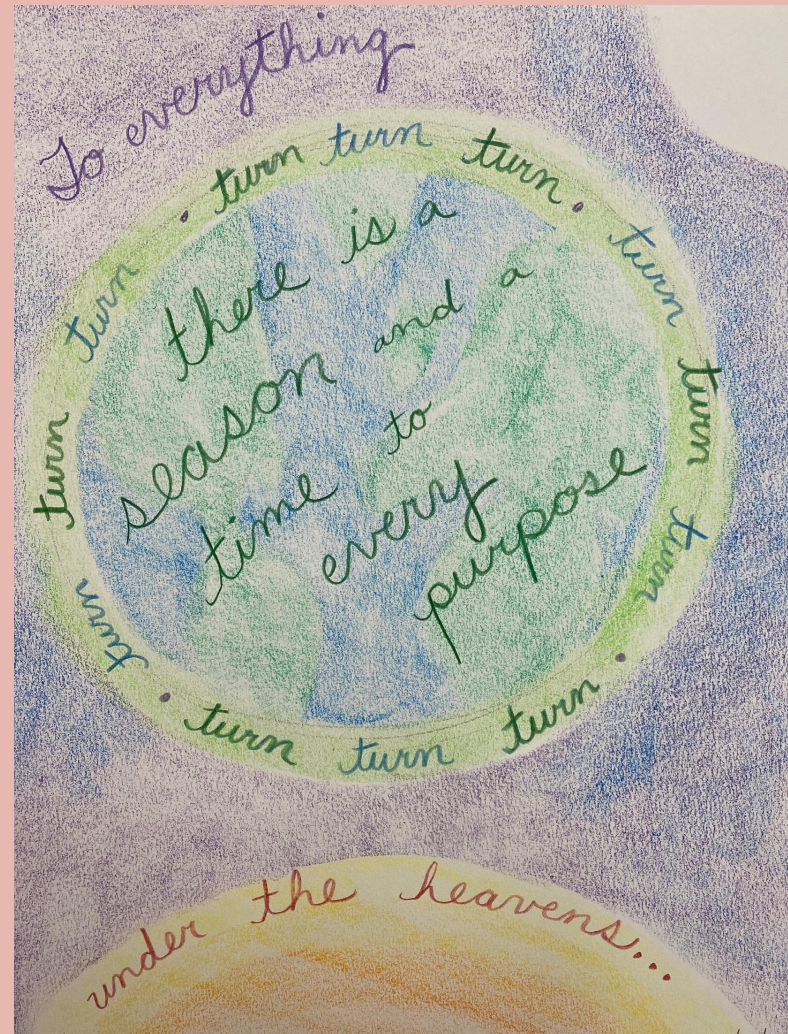 To everything
turn turn turn · turn turn turn · turn turn turn · turn turn turn ·
there is a
season and a
time to
every
purpose
under the heavens...